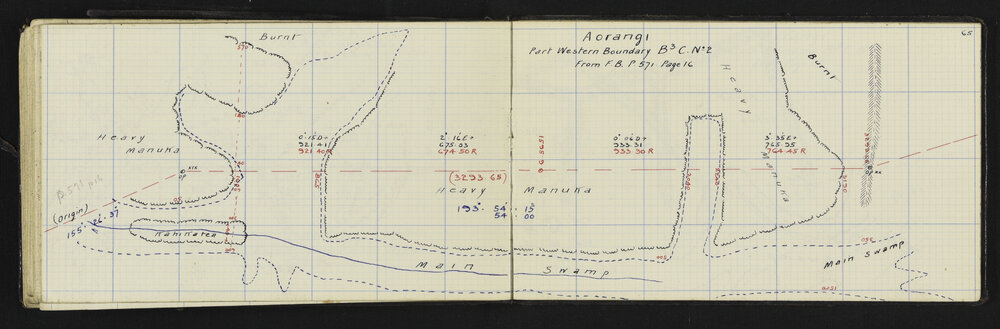 65
Aorangi
Part Western Boundary B³ C. Nº 2
From F.B. P 571 Page 16
Burnt
570
180
Heavy
Manuka
0° 15' D+
921.41
921.40 R
2° 16' E+
675.03
674.50 R
0° 06' D+
933.31
933.30 R
3° 35' E+
765.95
764.45 R
Heavy
Manuka
Burnt
(3293.65)
Heavy Manuka
193° 54' 15"
54 00
(Origin)
155° 26' 37"
Kahikatea
Main Swamp
Main Swamp